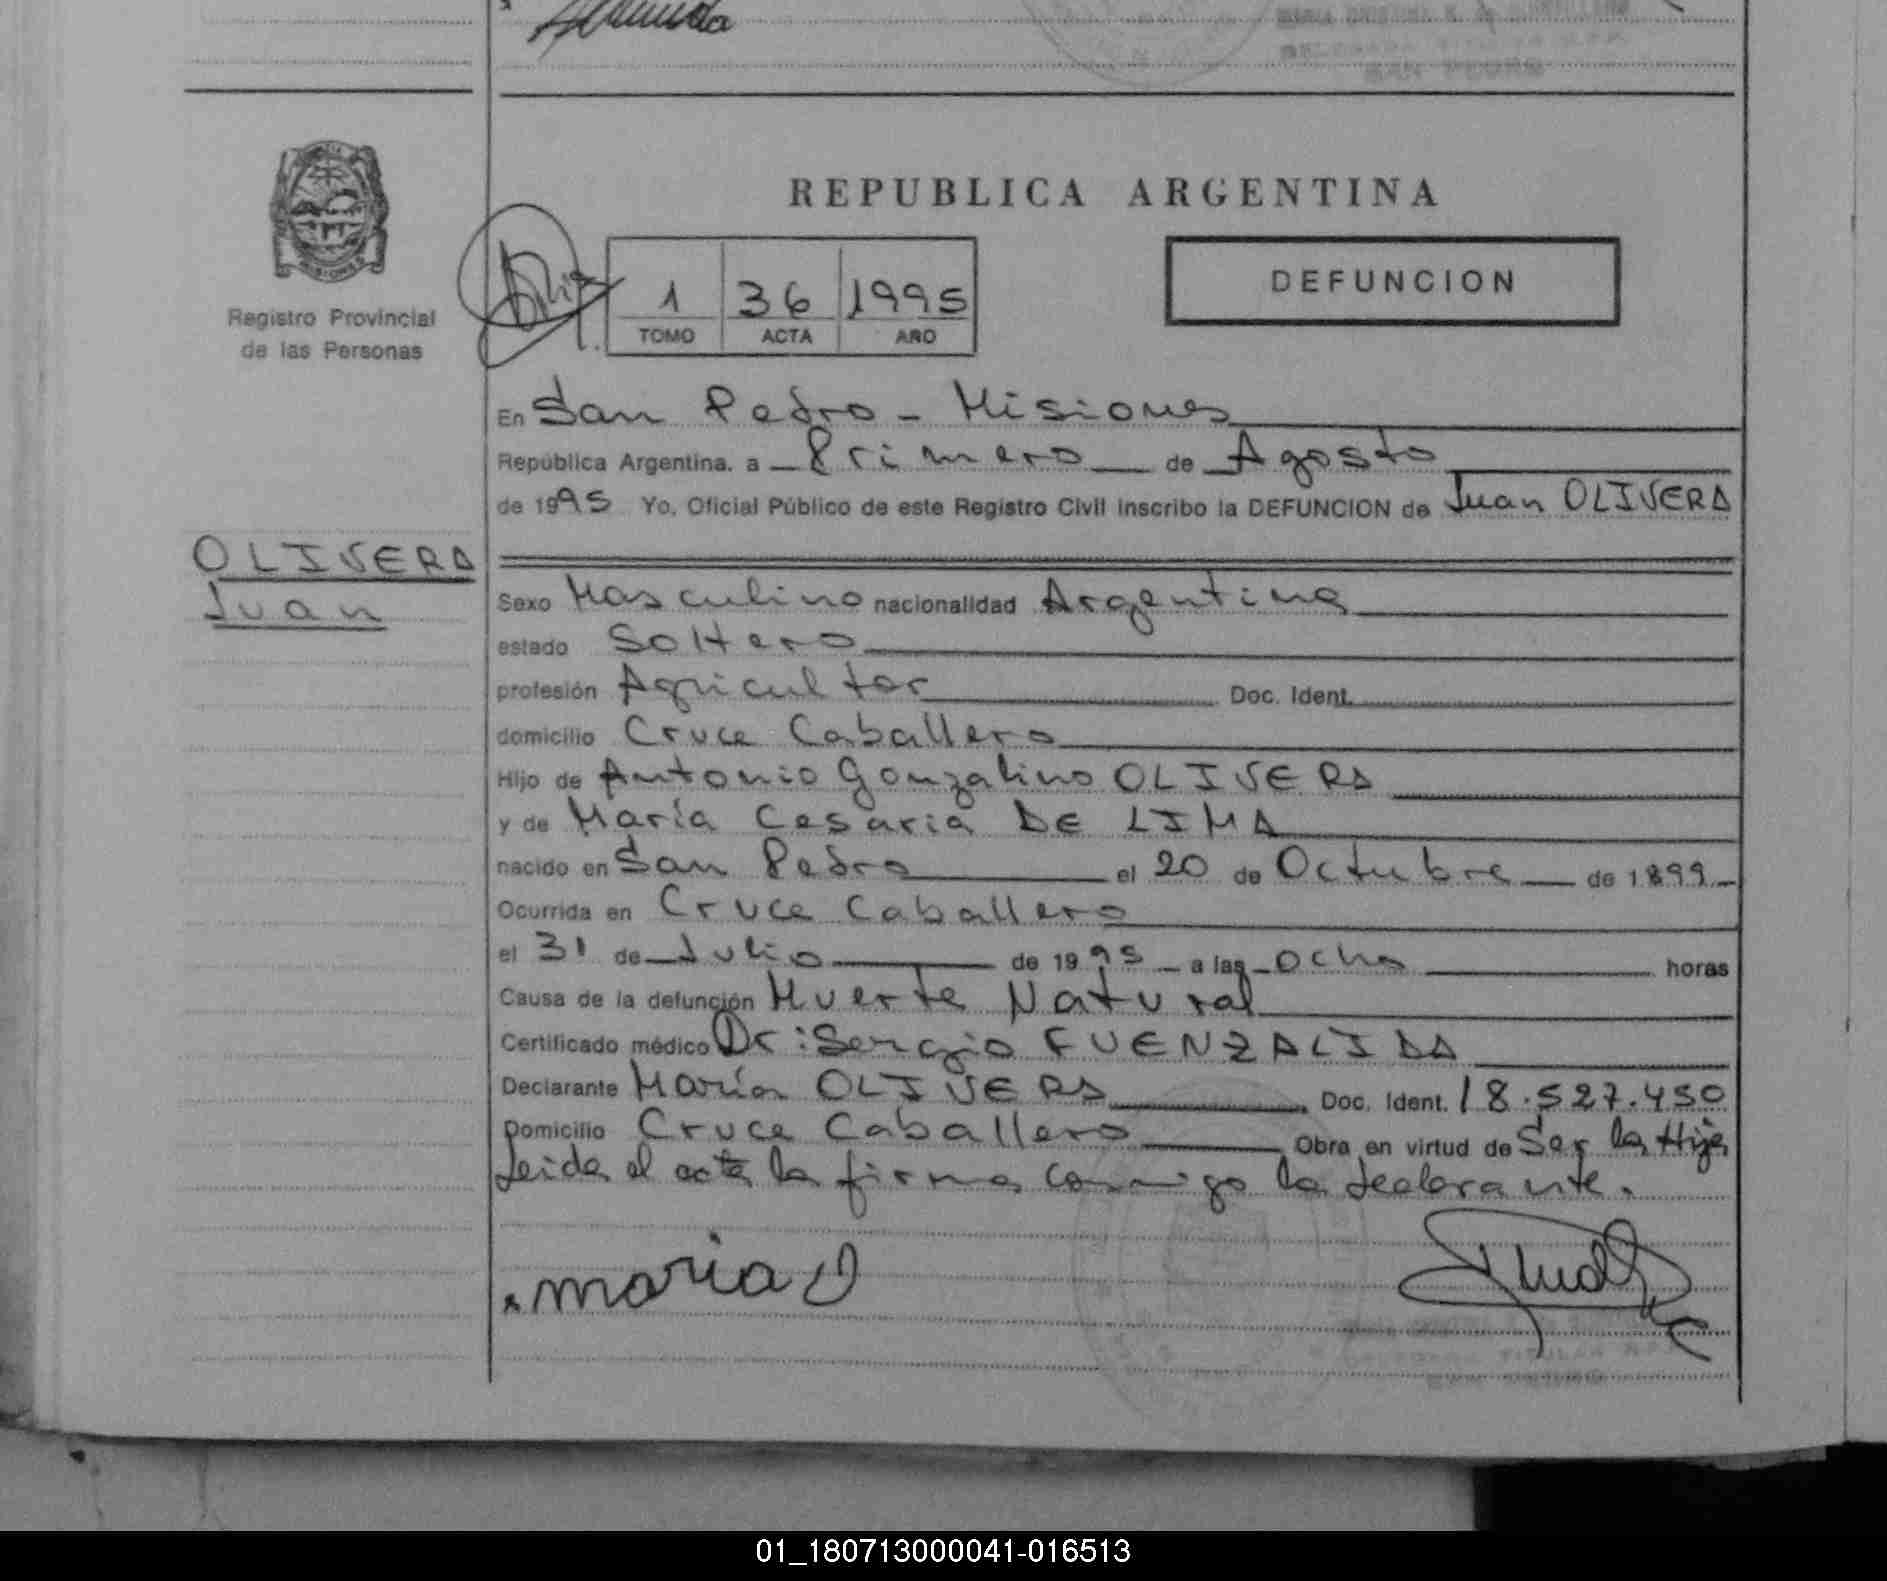 REPUBLICA ARGENTINA
Registro Provincial
de las Personas
1 36 1995
TOMO ACTA AÑO
DEFUNCION
En San Pedro - Misiones
República Argentina. a Primero de Agosto
de 1995 Yo, Oficial Público de este Registro Civil inscribo la DEFUNCION de Juan OLIVERA
OLIVERA
Juan
Sexo Masculino nacionalidad Argentina
estado Soltero
profesión Agricultor Doc. Ident.
domicilio Cruce Caballero
Hijo de Antonio Gonzalino OLIVERA
y de María Cesaria DE LIMA
nacido en San Pedro el 20 de Octubre de 1899
Ocurrida en Cruce Caballero
el 31 de Julio de 1995 a las Ocho horas
Causa de la defunción Muerte Natural
Certificado médico Dr: Sergio FUENZALIDA
Declarante María OLIVERA Doc. Ident. 18.527.450
Domicilio Cruce Caballero Obra en virtud de Ser la Hija
Leida el acta la firma conmigo la declarante.
maria O
TITULAR
SAN PEDRO
01_180713000041-016513